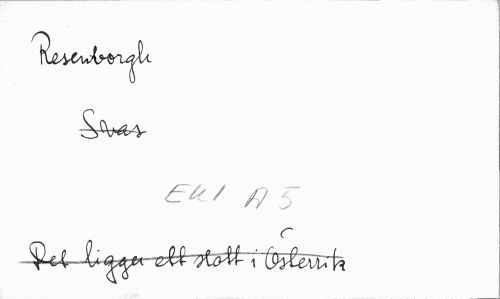 Resenborgh
Svas
EKI A 5
Det ligger ett slott i Österrik